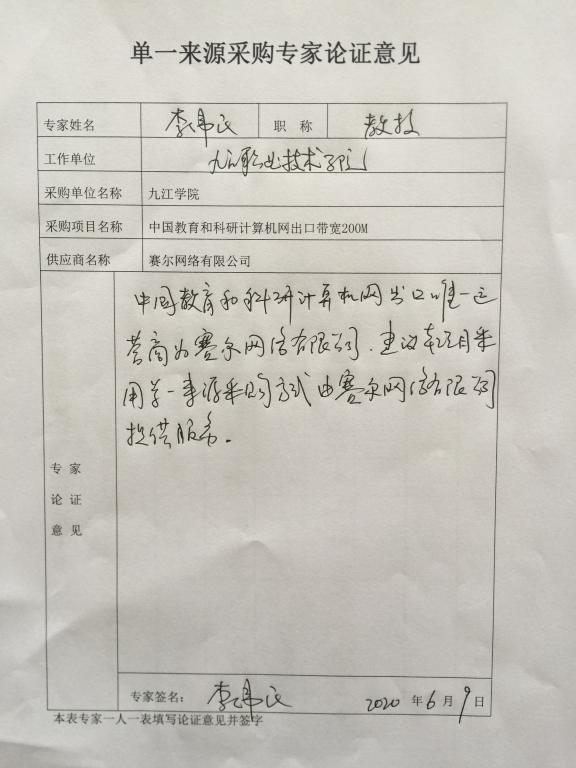 单一来源采购专家论证意见
专家姓名 李伟民 职 称 教授
工作单位 九江职业技术学院
采购单位名称 九江学院
采购项目名称 中国教育和科研计算机网出口带宽200M
供应商名称 赛尔网络有限公司
专 家
论 证
意 见
中国教育和科研计算机网出口唯一运
营商为赛尔网络有限公司,建议本项目采
用单一来源采购方式由赛尔网络有限公司
提供服务。
专家签名: 李伟民 2020 年 6 月 9 日
本表专家一人一表填写论证意见并签字